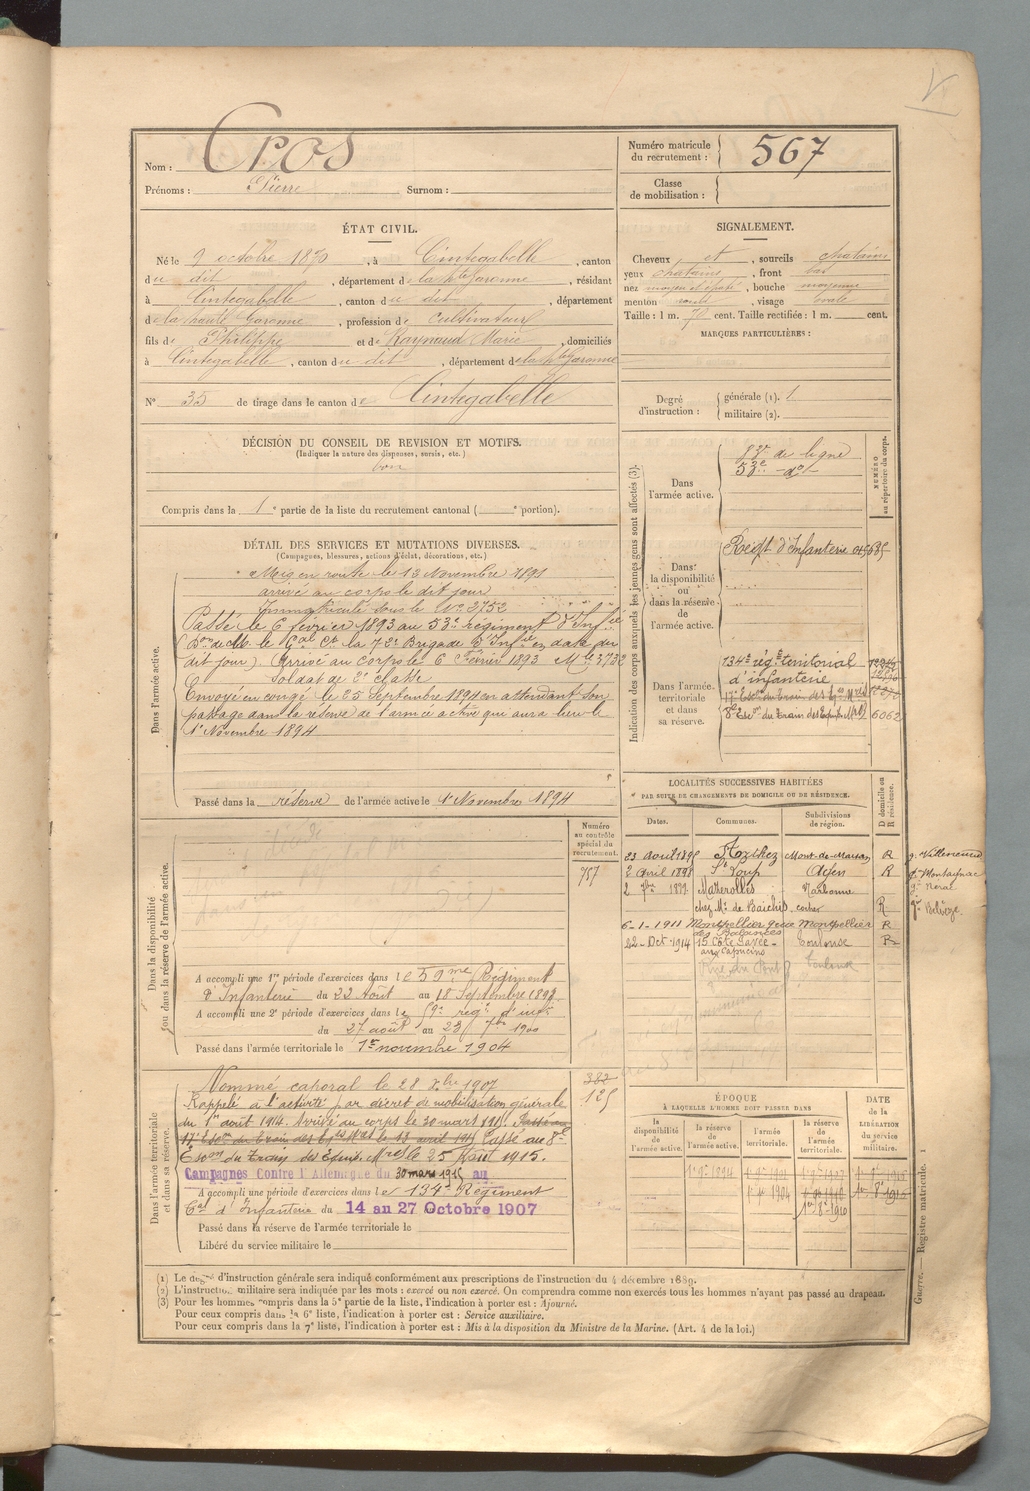 Nom : Cros
Prénoms : Pierre Surnom :
Numéro matricule du recrutement : 567
Classe de mobilisation :
ÉTAT CIVIL.
Né le 9 octobre 1870, à Cintegabelle, canton
du dit, département de la Hte Garonne, résidant
à Cintegabelle, canton du dit, département
de la haute Garonne, profession de cultivateur
fils de Philippe et de Raynaud Marie, domiciliés
à Cintegabelle, canton du dit, département de la Hte Garonne
N° 35 de tirage dans le canton de Cintegabelle
SIGNALEMENT.
Cheveux et, sourcils chatains
yeux chatains, front bas
nez moyen et épaté, bouche moyenne
menton rond, visage ovale
Taille : 1 m. 70 cent. Taille rectifiée : 1 m. cent.
MARQUES PARTICULIÈRES :
Degré d'instruction : générale (1). 1
militaire (2).
DÉCISION DU CONSEIL DE REVISION ET MOTIFS.
(Indiquer la nature des dispenses, sursis, etc.)
bon
Compris dans la 1e partie de la liste du recrutement cantonal ( e portion).
Indication des corps auxquels les jeunes gens sont affectés (3).
NUMÉRO au répertoire du corps.
Dans l'armée active.
83e de ligne
53e do
Dans la disponibilité ou dans la réserve de l'armée active.
Regt d'Infanterie
Dans l'armée territoriale et dans sa réserve.
134e rég. territorial
d'infanterie
17e Escon du Train des Eq. Mres
8e Escon du Train des Equip. Mres 6062
DÉTAIL DES SERVICES ET MUTATIONS DIVERSES.
(Campagnes, blessures, actions d'éclat, décorations, etc.)
Dans l'armée active.
Mis en route le 13 Novembre 1891
arrivé au corps le dit jour
Immatriculé sous le No 2752
Passé le 6 février 1893 au 53e régiment d'Infie
(Don de M. le Gal Ct la 72e Brigade d'Infie en date du
dit jour). Arrivé au corps le 6 Février 1893 Mle 3732
Soldat de 2e classe
Envoyé en congé le 25 Septembre 1894 en attendant son
passage dans la réserve de l'armée active qui aura lieu le
1er Novembre 1894
Passé dans la réserve de l'armée active le 1er Novembre 1894
LOCALITÉS SUCCESSIVES HABITÉES
PAR SUITE DE CHANGEMENTS DE DOMICILE OU DE RÉSIDENCE.
Dates. Communes. Subdivisions de région. D domicile ou R résidence.
23 août 1895 Mont-de-Marsan R
2 avril 1898 St Loup Agen R
2 7bre 1899 Narbonne
R
6-1-1911 Montpellier Montpellier R
22-Oct-1914 15 Côte Pavée Toulouse R
aux Capucins
Dans la disponibilité ou dans la réserve de l'armée active.
Numéro au contrôle spécial du recrutement.
757
A accompli une 1re période d'exercices dans le 59me Régiment
d'Infanterie du 22 Août au 18 Septembre 1898
A accompli une 2e période d'exercices dans le 9e rég. d'infie
du 27 août au 23 7bre 1900
Passé dans l'armée territoriale le 1er novembre 1904
Dans l'armée territoriale et dans sa réserve.
382
125
Nommé caporal le 28 Xbre 1907
Rappelé à l'activité par décret de mobilisation générale
du 1er août 1914. Arrivé au corps le 30 mars 1915. Passé au
17e Escon du Train des Eq. Mres le 13 avril 1915 Passé au 8e
Escon du Train des Equip. Mres le 25 Août 1915.
Campagnes Contre l'Allemagne du 30 mars 1915 au
A accompli une période d'exercices dans le 134e Régiment
Tal d'Infanterie du 14 au 27 Octobre 1907
Passé dans la réserve de l'armée territoriale le
Libéré du service militaire le
ÉPOQUE
À LAQUELLE L'HOMME DOIT PASSER DANS
la disponibilité de l'armée active. la réserve de l'armée active. l'armée territoriale. la réserve de l'armée territoriale.
DATE de la LIBÉRATION du service militaire.
Guerre. — Registre matricule. 1
(1) Le degré d'instruction générale sera indiqué conformément aux prescriptions de l'instruction du 4 décembre 1889.
(2) L'instruction militaire sera indiquée par les mots : exercé ou non exercé. On comprendra comme non exercés tous les hommes n'ayant pas passé au drapeau.
(3) Pour les hommes compris dans la 5e partie de la liste, l'indication à porter est : Ajourné.
Pour ceux compris dans la 6e liste, l'indication à porter est : Service auxiliaire.
Pour ceux compris dans la 7e liste, l'indication à porter est : Mis à la disposition du Ministre de la Marine. (Art. 4 de la loi.)